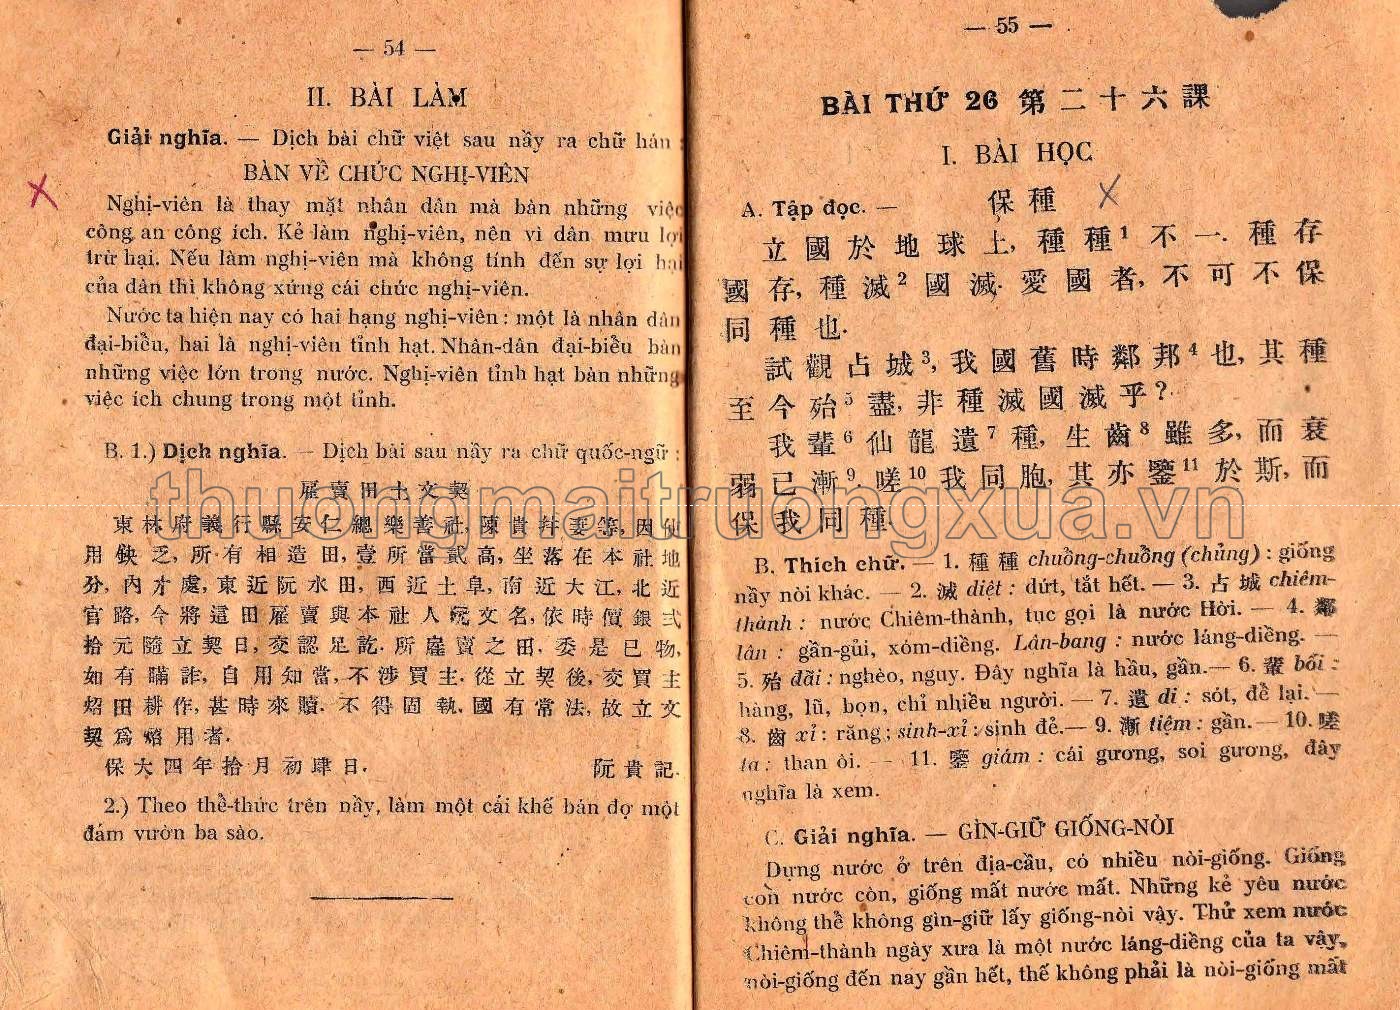 — 54 —
II. BÀI LÀM
Giải nghĩa. — Dịch bài chữ việt sau nầy ra chữ hán :
BÀN VỀ CHỨC NGHỊ-VIÊN
Nghị-viên là thay mặt nhân dân mà bàn những việc
công an công ích. Kẻ làm nghị-viên, nên vì dân mưu lợi
trừ hại. Nếu làm nghị-viên mà không tính đến sự lợi hại
của dân thì không xứng cái chức nghị-viên.
Nước ta hiện nay có hai hạng nghị-viên : một là nhân dân
đại-biểu, hai là nghị-viên tỉnh hạt. Nhân-dân đại-biểu bàn
những việc lớn trong nước. Nghị-viên tỉnh hạt bàn những
việc ích chung trong một tỉnh.
B. 1.) Dịch nghĩa. — Dịch bài sau nầy ra chữ quốc-ngữ :
雇賣田土文契
東林府義行縣安仁總樂善社, 陳貴幷妻等, 因
用缺乏, 所有相造田, 壹所當貳高, 坐落在本社地
分, 內才處, 東近阮水田, 西近土阜, 南近大江, 北近
官路, 今將這田雇賣與本社人阮文名, 依時價銀弍
拾元隨立契日, 交認足訖. 所雇賣之田, 委是已物,
如有瞞詐, 自用知當, 不涉買主. 從立契後, 交買主
炤田耕作, 甚時來贖. 不得固執. 國有常法, 故立文
契爲炤用者.
保大四年拾月初肆日. 阮貴記.
2.) Theo thể-thức trên nầy, làm một cái khế bán đợ một
đám vườn ba sào.
— 55 —
BÀI THỨ 26 第二十六課
I. BÀI HỌC
A. Tập đọc. — 保種
立國於地球上, 種種1不一. 種存
國存, 種滅2國滅. 愛國者, 不可不保
同種也.
試觀占城3, 我國舊時鄰邦4也, 其種
至今殆5盡, 非種滅國滅乎?
我輩6仙龍遺7種, 生齒8雖多, 而衰
弱已漸9. 嗟10我同胞, 其亦鑒11於斯, 而
保我同種.
B. Thích chữ. — 1. 種種 chuồng-chuồng (chủng) : giống
nầy nòi khác. — 2. 滅 diệt : dứt, tắt hết. — 3. 占城 chiêm-
thành : nước Chiêm-thành, tục gọi là nước Hời. — 4. 鄰
lân : gần-gủi, xóm-diềng. Lân-bang : nước láng-diềng. —
5. 殆 đãi : nghèo, nguy. Đây nghĩa là hầu, gần. — 6. 輩 bối :
hàng, lũ, bọn, chỉ nhiều người. — 7. 遺 di : sót, để lại. —
8. 齒 xỉ : răng ; sinh-xỉ : sinh đẻ. — 9. 漸 tiệm : gần. — 10. 嗟
ta : than ôi. — 11. 鑒 giám : cái gương, soi gương, đây
nghĩa là xem.
C. Giải nghĩa. — GÌN-GIỮ GIỐNG-NÒI
Dựng nước ở trên địa-cầu, có nhiều nòi-giống. Giống
còn nước còn, giống mất nước mất. Những kẻ yêu nước
không thể không gìn-giữ lấy giống-nòi vậy. Thử xem nước
Chiêm-thành ngày xưa là một nước láng-diềng của ta vậy,
nòi-giống đến nay gần hết, thế không phải là nòi-giống mất
thuongmaitruongxua.vn